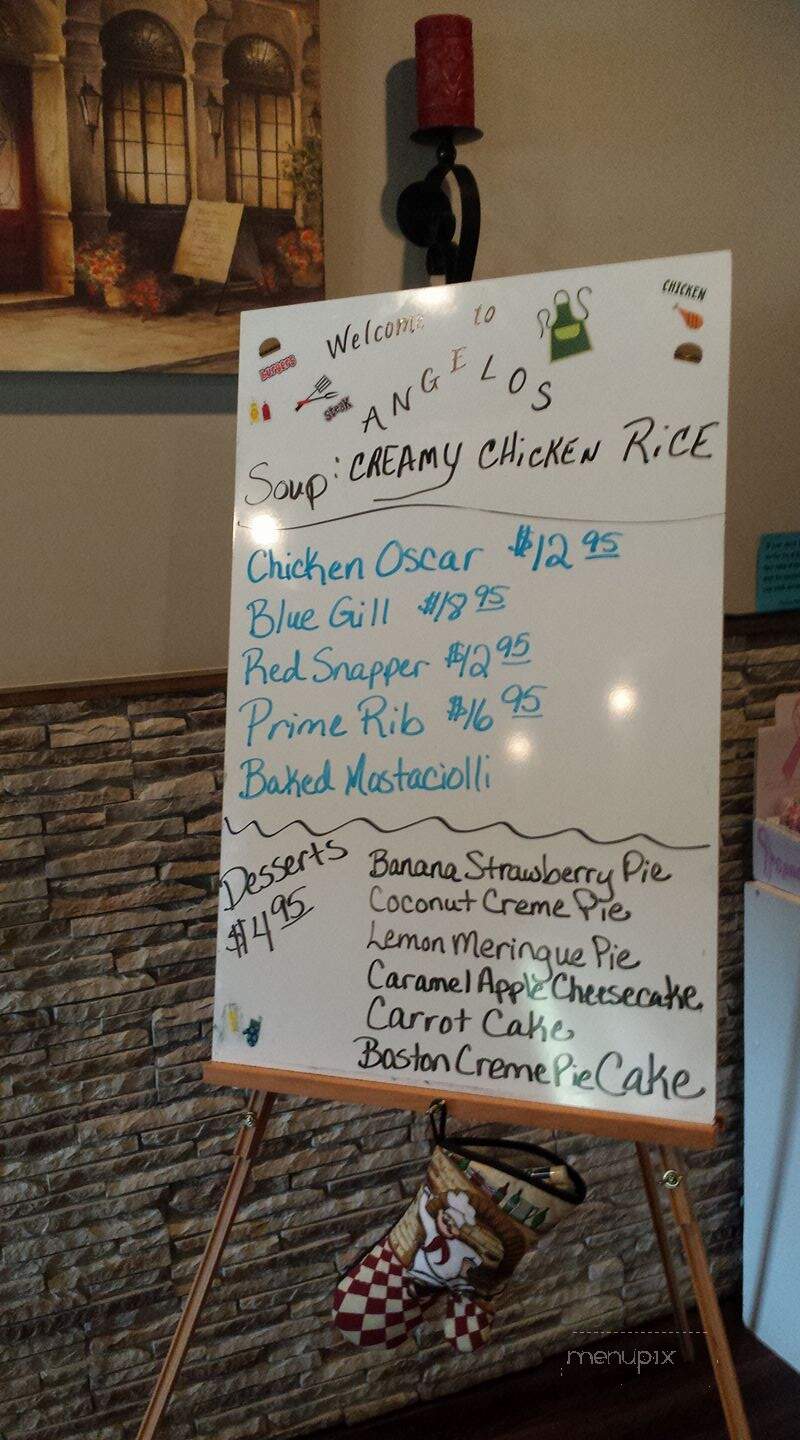 Welcome to
CHICKEN
BURGERS
STEAK
ANGELOS
Soup: CREAMY CHICKEN RICE
Chicken Oscar $12 95
Blue Gill $18 95
Red Snapper $12 95
Prime Rib $16 95
Baked Mostaciolli
Desserts
$4 95
Banana Strawberry Pie
Coconut Creme Pie
Lemon Meringue Pie
Caramel Apple Cheesecake
Carrot Cake
Boston Creme Pie Cake
menupix